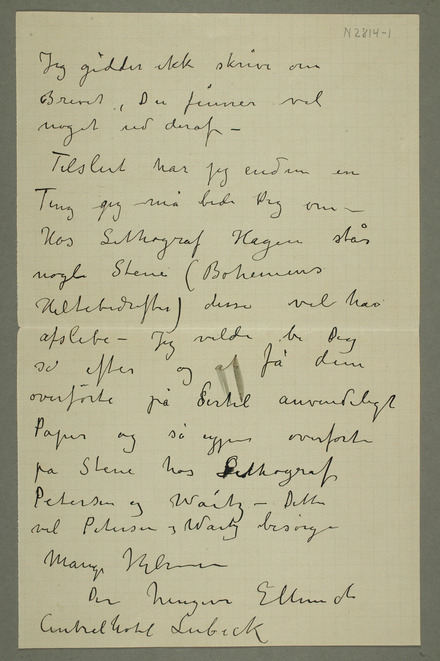 N2814-1
Jeg gidder ikk skrive om
Brevet, Du finner vel
noget ud deraf –
Tilslut har jeg endnu en
Ting jeg må bede Dig om –
Hos Lithograf Hagen står
nogle Stene (Bohemens
Heltebedrifter) disse vil han
afslibe – Jeg vilde be Dig
se efter og få dem
overførte på
anvendeligt
Papir og så igjen overførte
på Stene hos Lithograf
Petersen og Waitz – Dette
vil Petersen & Waitz besørge
Mange Hilsener
Din hengivne EMunch
Centralhotel Lübeck